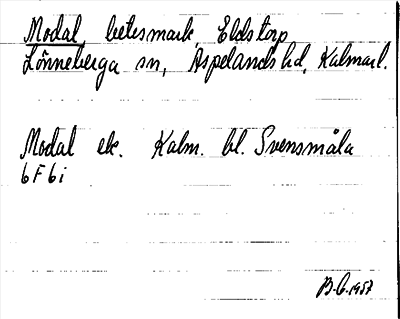 Modal, betesmark, Eldstorp
Lönneberga sn, Aspelands hd, Kalmar l.
Modal ek. Kalm. bl. Svensmåla
6F6i
B.G. 1957